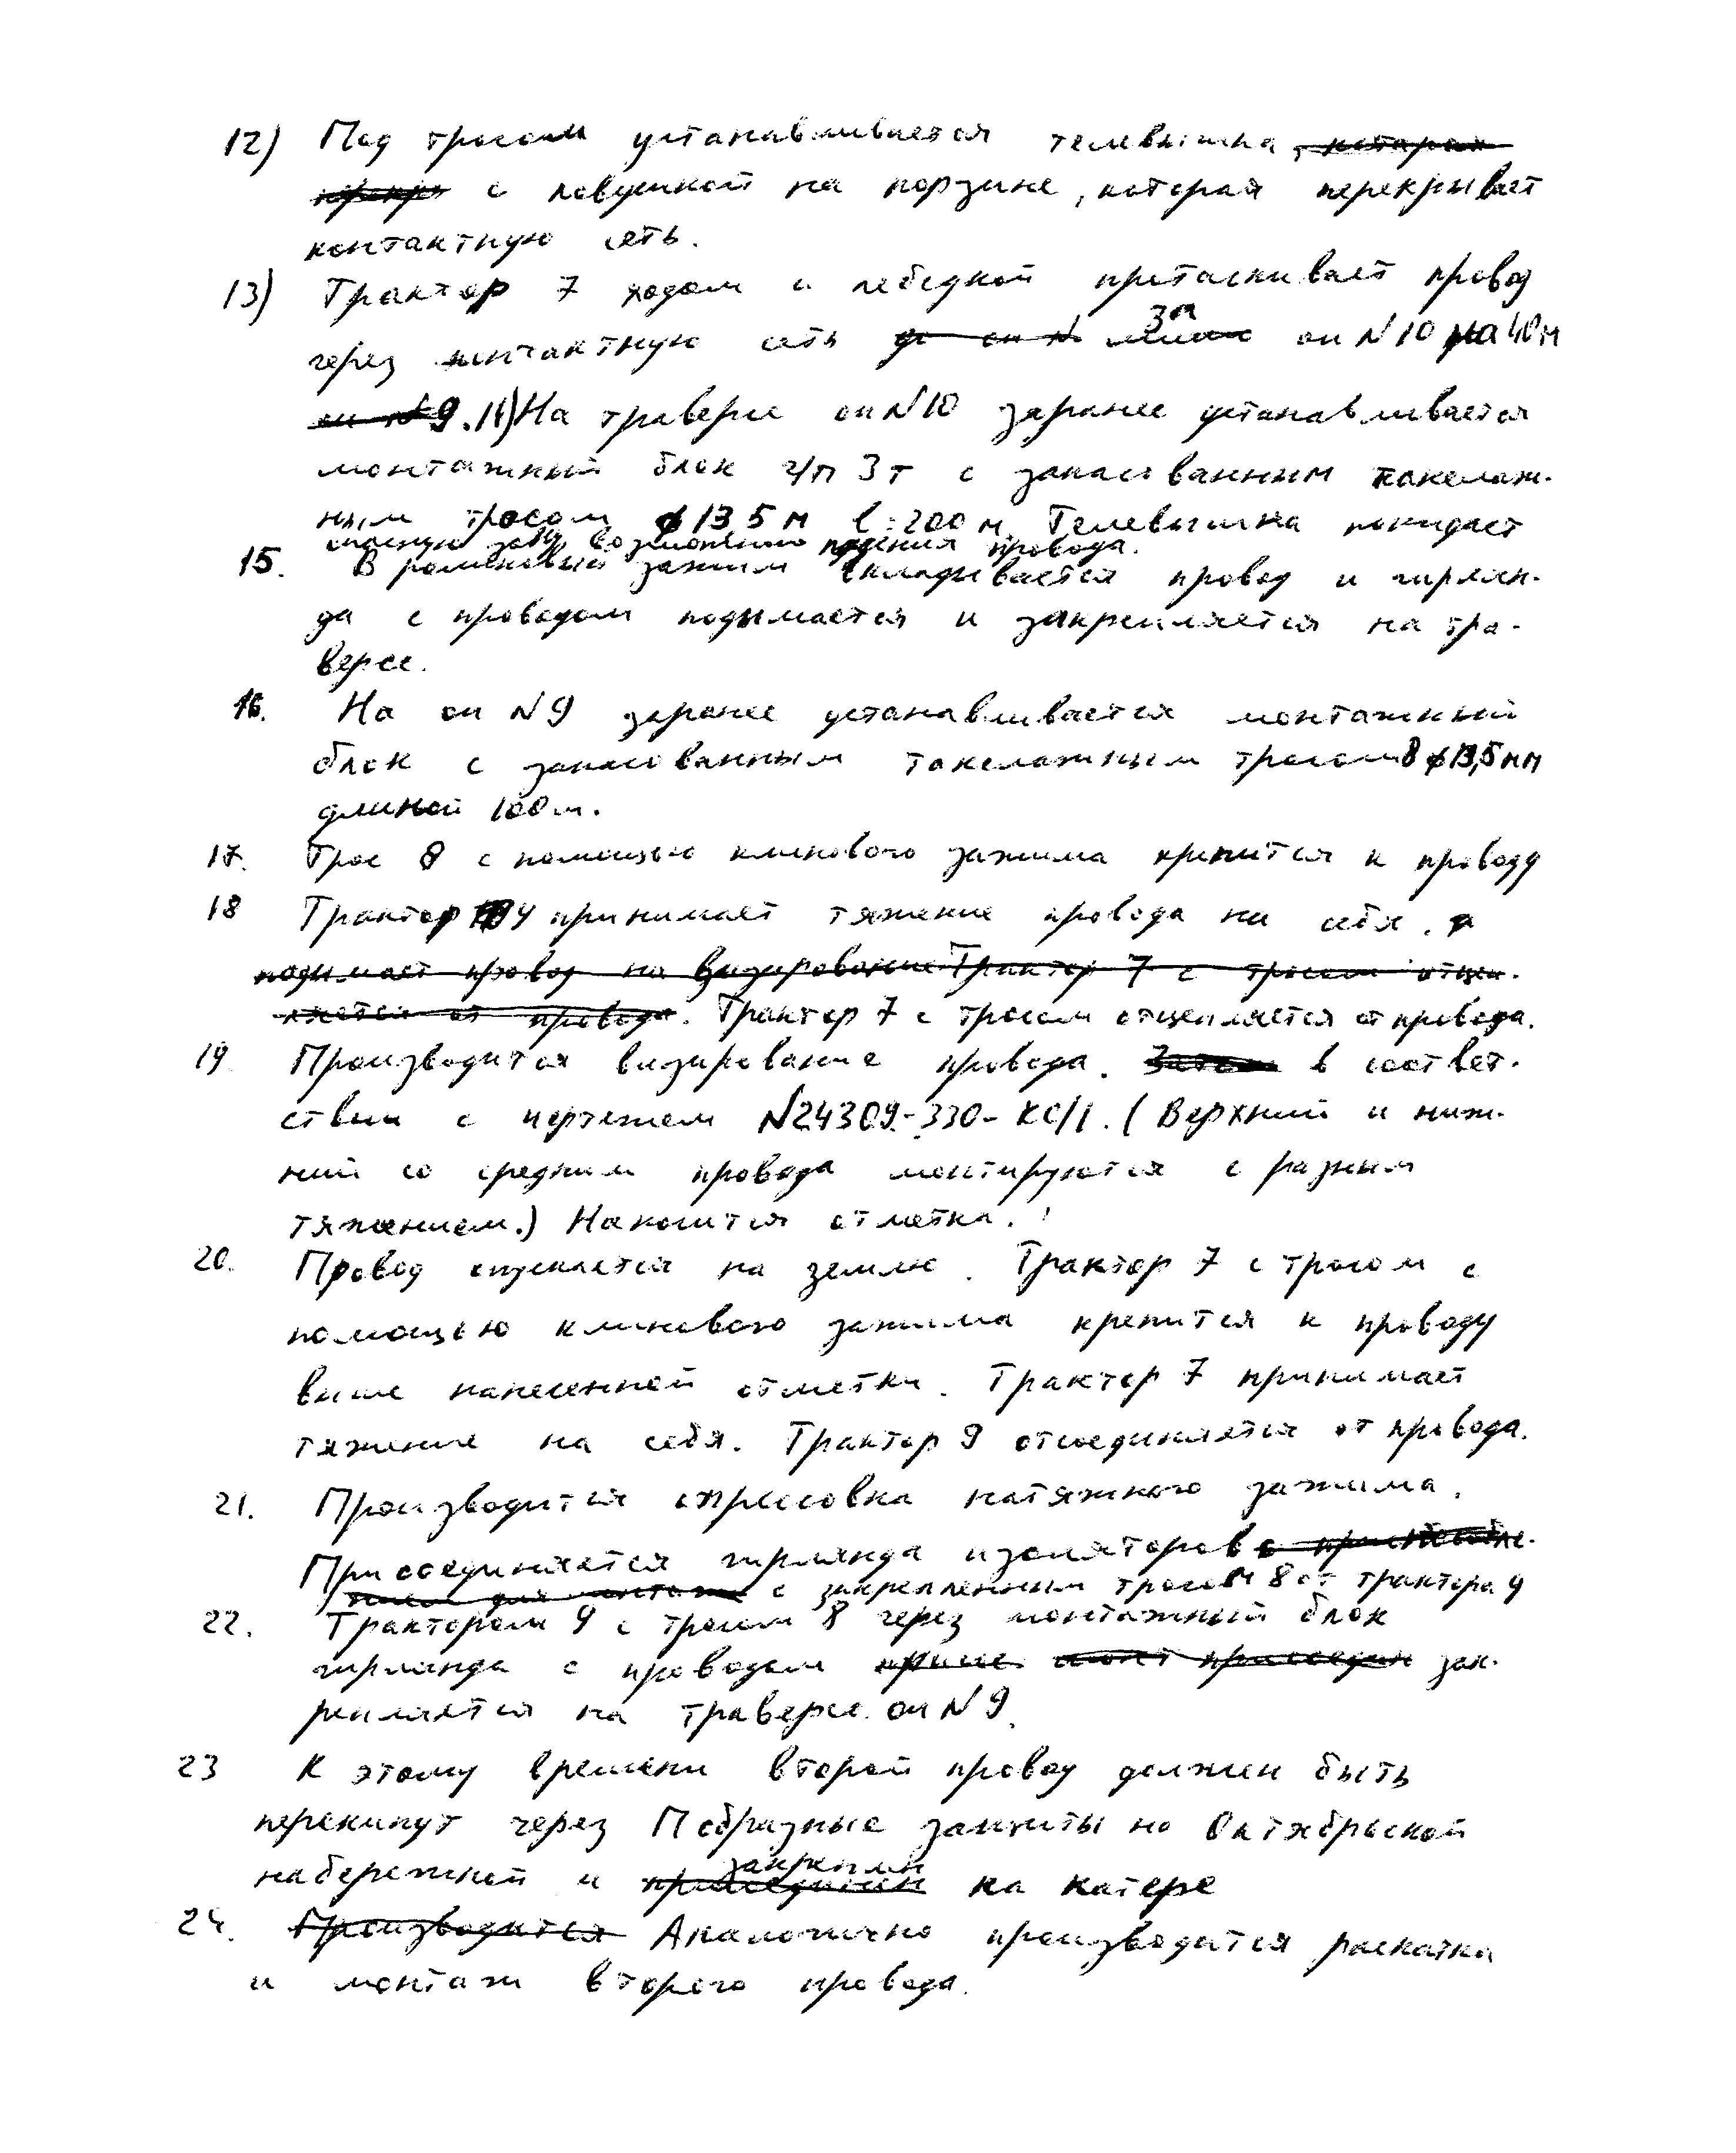 12) Под тросом устанавливается телевышка, которая
перекры с ловушкой на корзине, которая перекрывает
контактную сеть.
13) Трактор 7 ходом и лебедкой протаскивает провод
за
через контактную сеть до оп N оп N 10 на 40м
оп N 9. 14) На траверсе оп N 10 заранее устанавливается
монтажный блок г/п 3т с запасованным такелаж-
ным тросом ϕ 13,5 м l=200 м. Телевышка покидает
опасную зону возможного падения провода.
15. В роликовый зажим вкладывается провод и гирлян-
да с проводом подымается и закрепляется на тра-
версе.
16. На оп N 9 заранее устанавливается монтажный
блок с запасованным такелажным тросом 8 ϕ 13,5 мм
длиной 100 м.
17. Трос 8 с помощью клинового зажима крепится к проводу
18 Трактор 9 принимает тяжение провода на себя.
подымает провод на визирование Трактор 7 с тросом отцеп-
ляется от провода. Трактор 7 с тросом отцепляется от провода.
19 Производится визирование провода. Затем в соответ-
ствии с чертежем N24309-330-КС/1. (Верхний и ниж-
ний со средним провода монтируются с разным
тяжением.) Наносится отметка.
20. Провод опускается на землю. Трактор 7 с тросом с
помощью клинового зажима крепится к проводу
выше нанесенной отметки. Трактор 7 принимает
тяжение на себя. Трактор 9 отсоединяется от провода.
21. Производится опрессовка натяжного зажима.
Присоединяется гирлянда изоляторов с
для монтажа с закрепленным тросом 8 от трактора 9
22. Трактором 9 с тросом 8 через монтажный блок
гирлянда с проводом присоедин зак-
репляется на траверсе оп N 9.
23 К этому времени второй провод должен быть
перекинут через П образные защиты по Октябрьской
закреплен
набережной и присоединен на катере
24. Производится Аналогично производится раскатка
и монтаж второго провода.